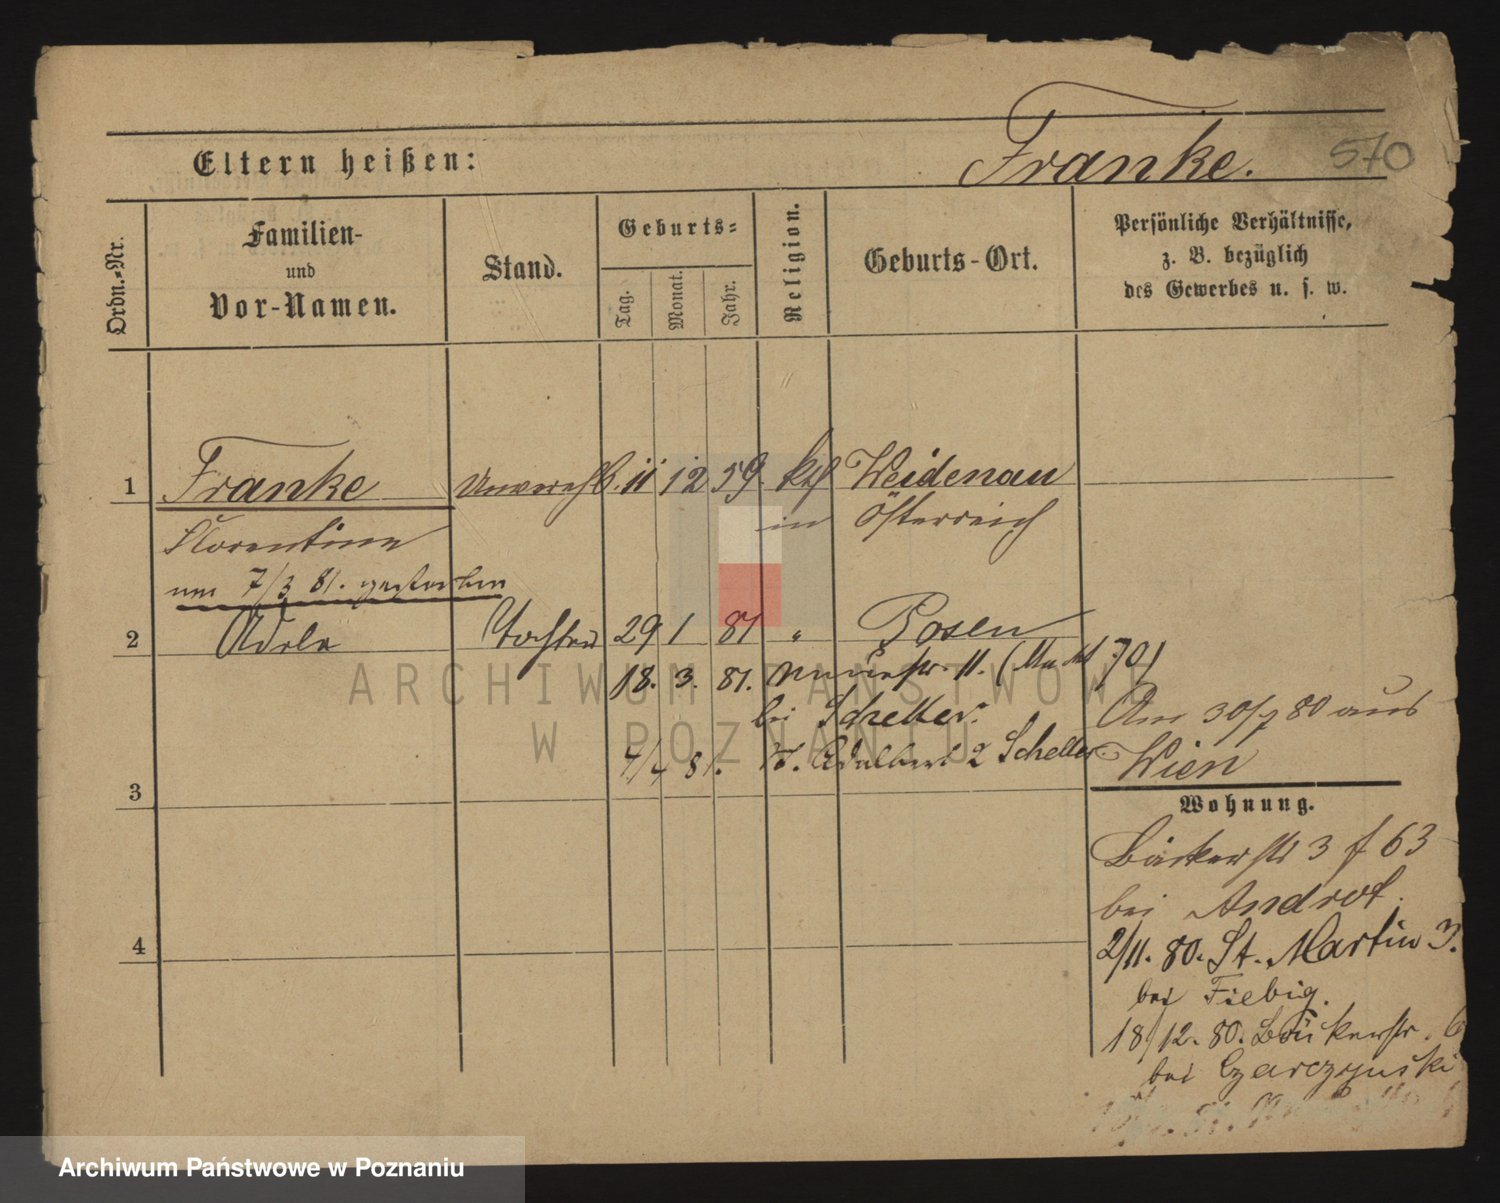 Eltern heißen:
Franke.
570
Ordn.-Nr.
Familien-
und
Vor-Namen.
Stand.
Geburts-
Tag.
Monat.
Jahr.
Religion.
Geburts-Ort.
Persönliche Verhältnisse,
z. B. bezüglich
des Gewerbes u. s. w.
1 Franke Unverehl. 11 12 59. kth Weidenau
in Österreich
Florentine
am 7/3 81. gestorben
2 Adele Tochter 29 1 81 " Posen
18. 3. 81. 11. ( 70)
bei Scheller.
Am 30/7 80 aus
4/4 81. St. Adalbert 2 Scheller.
Wien
3
Wohnung.
Bäckerstr 3 f 63
bei Androt.
4
2/11. 80. St. Martin 3.
bei Fiebig.
18/12. 80. Bäckerstr. 6
bei Czarczynski
ARCHIWUM PAŃSTWOWE
W POZNANIU
Archiwum Państwowe w Poznaniu